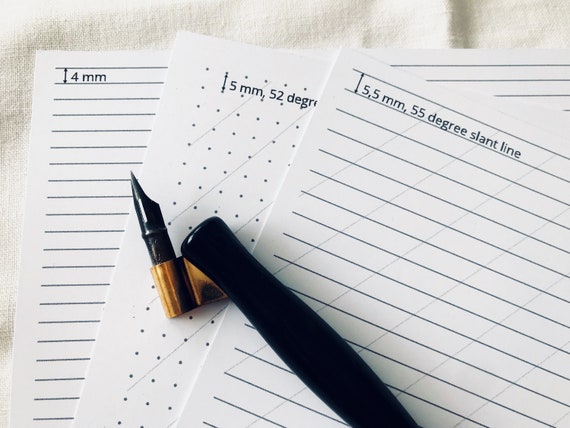 4 mm
5 mm, 52 degre
5,5 mm, 55 degree slant line